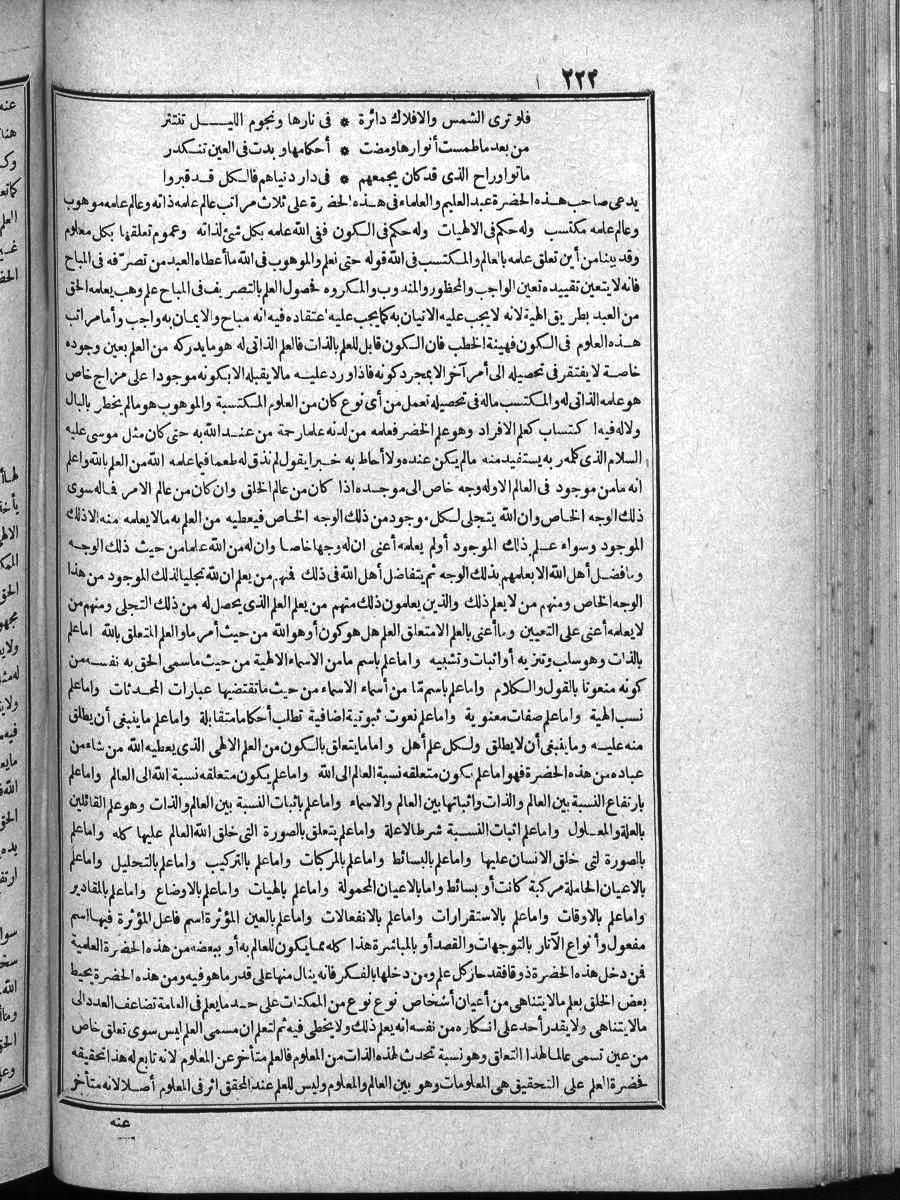 ٢٢٢
فلو ترى الشمس والافلاك دائرة * فى نارها ونجوم الليل تنتثر
من بعد ما طمست أنوارها ومضت * أحكامها وبدت فى العين تنكدر
ماتوا وراح الذى قد كان يجمعهم * فى دار دنياهم فالكل قد قبروا
يدعى صاحب هذه الحضرة عبد العليم والعلماء فى هذه الحضرة على ثلاث مراتب عالم علمه ذاته وعالم علمه موهوب
وعالم علمه مكتسب وله حكم فى الالهيات وله حكم فى الكون ففى الله علمه بكل شئ لذاته وعموم تعلقها بكل معلوم
وقد بينا من أين تعلق علمه بالعالم والمكتسب فى الله قوله حتى نعلم والموهوب فى الله ما أعطاه العبد من تصرّفه فى المباح
فانه لا يتعين تقييده تعين الواجب والمحظور والمندوب والمكروه فحصول العلم بالتصريف فى المباح علم وهب يعلمه الحق
من العبد بطريق الهبة لانه لا يجب عليه الاتيان به كما يجب عليه اعتقاده فيه انه مباح والايمان به واجب وأما مراتب
هذه العلوم فى الكون فهينة الخطب فان الكون قابل للعلم بالذات فالعلم الذاتى له هو ما يدركه من العلم بعين وجوده
خاصة لا يفتقر فى تحصيله الى أمر آخر الا بمجرد كونه فاذا ورد عليه مالا يقبله الا بكونه موجودا على مزاج خاص
هو علمه الذاتى له والمكتسب ماله فى تحصيله تعمل من أى نوع كان من العلوم المكتسبة والموهوب هو مالم يخطر بالبال
ولا له فيه اكتساب كعلم الافراد وهو علم الخضر فعلمه من لدنه علما رحمة من عند الله به حتى كان مثل موسى عليه
السلام الذى كلمه ربه يستفيد منه مالم يكن عنده ولا أحاط به خبرا يقول لم نذق له طعما فيما علمه الله من العلم بالله واعلم
انه ما من موجود فى العالم الا وله وجه خاص الى موجده اذا كان من عالم الخلق وان كان من عالم الامر فما له سوى
ذلك الوجه الخاص وان الله يتجلى لكل موجود من ذلك الوجه الخاص فيعطيه من العلم به مالا يعلمه منه الا ذلك
الموجود وسواء علم ذلك الموجود أو لم يعلمه أعنى ان له وجها خاصا وان له من الله علما من حيث ذلك الوجه
وما فضل أهل الله الا بعلمهم بذلك الوجه ثم يتفاضل أهل الله فى ذلك فمنهم من يعلم ان لله تجليا لذلك الموجود من هذا
الوجه الخاص ومنهم من لا يعلم ذلك والذين يعلمون ذلك منهم من يعلم العلم الذى يحصل له من ذلك التجلى ومنهم من
لا يعلمه أعنى على التعيين وما أعنى بالعلم الا متعلق العلم هل هو كون أو هو الله من حيث أمر ما والعلم المتعلق بالله اما علم
بالذات وهو سلب وتنزيه أو اثبات وتشبيه واما علم باسم ما من الاسماء الالهية من حيث ما سمى الحق به نفسه من
كونه منعوتا بالقول والكلام واما علم باسم مّا من أسماء الاسماء من حيث ما تقتضيها عبارات المحدثات واما علم
نسب الهية واما علم صفات معنوية واما علم نعوت ثبوتية اضافية تطلب أحكاما متقابلة واما علم ما ينبغى أن يطلق
منه عليه وما ينبغى أن لا يطلق ولكل علم أهل واما ما يتعلق بالكون من العلم الالهى الذى يعطيه الله من شاء من
عباده من هذه الحضرة فهو اما علم يكون متعلقه نسبة العالم الى الله واما علم يكون متعلقه نسبة الله الى العالم واما علم
بارتفاع النسبة بين العالم والذات واثباتها بين العالم والاسماء واما علم باثبات النسبة بين العالم والذات وهو علم القائلين
بالعلة والمعلول واما علم اثبات النسبة شرطا لا علة واما علم يتعلق بالصورة التى خلق الله العالم عليها كله واما علم
بالصورة لتى خلق الانسان عليها واما علم بالبسائط واما علم بالمركبات واما علم بالتركيب واما علم بالتحليل واما علم
بالاعيان الحاملة مركبة كانت أو بسائط واما بالاعيان المحمولة واما علم بالهيات واما علم بالاوضاع واما علم بالمقادير
واما علم بالاوقات واما علم بالاستقرارات واما علم بالانفعالات واما علم بالعين المؤثرة اسم فاعل المؤثرة فيها اسم
مفعول وأنواع الآثار بالتوجهات والقصد أو بالمباشرة هذا كله مما يكون للعالم به أو ببعضه من هذه الحضرة العلمية
فمن دخل هذه الحضرة ذوقا فقد حاز كل علم ومن دخلها بالفكر فانه ينال منها على قدر ما هو فيه ومن هذه الحضرة يحيط
بعض الخلق بعلم مالا يتناهى من أعيان أشخاص نوع نوع من الممكنات على حد ما يعلم فى العامة تضاعف العدد الى
مالا يتناهى ولا يقدر أحد على انكاره من نفسه انه يعلم ذلك ولا يخطى فيه ثم لتعلم ان مسمى العلم ليس سوى تعلق خاص
من عين تسمى عالما لهذا التعلق وهو نسبة تحدث لهذه الذات من المعلوم فالعلم متأخر عن المعلوم لانه تابع له هذا تحقيقه
فحضرة العلم على التحقيق هى المعلومات وهو بين العالم والمعلوم وليس للعلم عند المحقق اثر فى المعلوم أصلا لانه متأخر
عنه